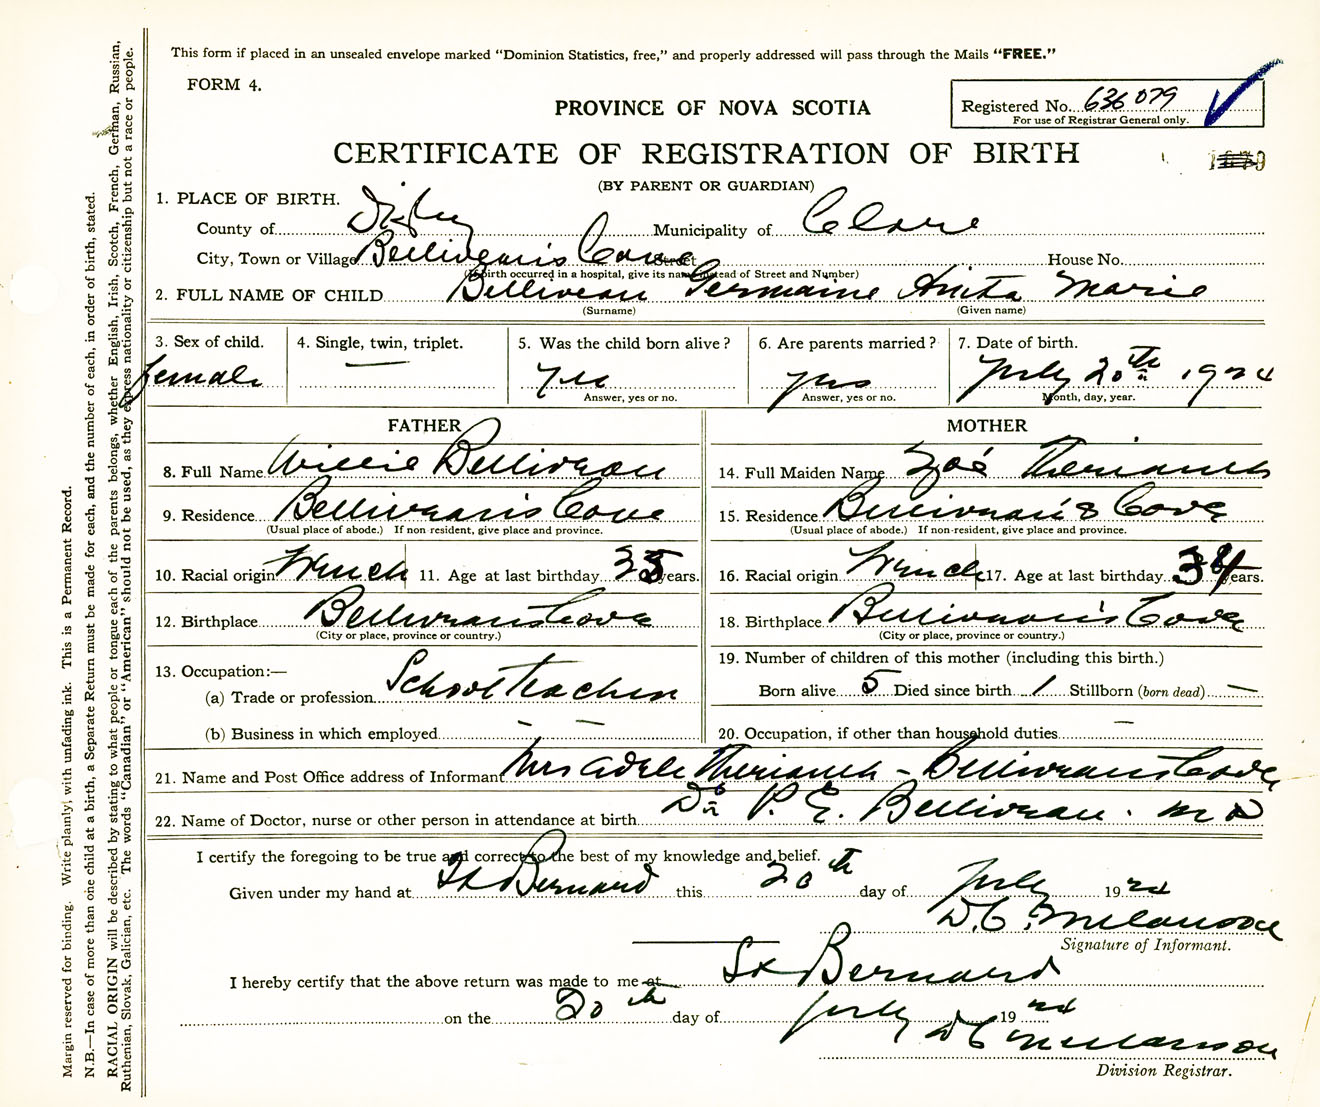 This form if placed in an unsealed envelope marked “Dominion Statistics, free,” and properly addressed will pass through the Mails “FREE.”
FORM 4.
PROVINCE OF NOVA SCOTIA
Registered No. 636079
For use of Registrar General only.
CERTIFICATE OF REGISTRATION OF BIRTH
(BY PARENT OR GUARDIAN)
1. PLACE OF BIRTH.
County of Digby Municipality of Clare
City, Town or Village Belliveau's Cove Street House No.
(If birth occurred in a hospital, give its name instead of Street and Number)
2. FULL NAME OF CHILD Belliveau Germaine Anita Marie
(Surname) (Given name)
3. Sex of child. 4. Single, twin, triplet. 5. Was the child born alive? 6. Are parents married? 7. Date of birth.
female — yes yes July 20th 1924
Answer, yes or no. Answer, yes or no. Month, day, year.
FATHER MOTHER
8. Full Name Willie Belliveau 14. Full Maiden Name Zoé Theriault
9. Residence Belliveau's Cove 15. Residence Belliveau's Cove
(Usual place of abode.) If non-resident, give place and province. (Usual place of abode.) If non-resident, give place and province.
10. Racial origin French 11. Age at last birthday 35 years. 16. Racial origin French 17. Age at last birthday 34 years.
12. Birthplace Belliveaus Cove 18. Birthplace Belliveau's Cove
(City or place, province or country.) (City or place, province or country.)
13. Occupation:— 19. Number of children of this mother (including this birth.)
(a) Trade or profession School Teacher Born alive 5 Died since birth 1 Stillborn (born dead) —
(b) Business in which employed — — 20. Occupation, if other than household duties —
21. Name and Post Office address of Informant Mrs Adele Theriault - Belliveaus Cove
22. Name of Doctor, nurse or other person in attendance at birth Dr P. E. Belliveau. M D
I certify the foregoing to be true and correct to the best of my knowledge and belief.
Given under my hand at St Bernard this 20th day of July 1924
D. C. Melanson
Signature of Informant.
I hereby certify that the above return was made to me at St Bernard
on the 20th day of July 1924
D C Melanson
Division Registrar.
Margin reserved for binding. Write plainly, with unfading ink. This is a Permanent Record.
N.B.—In case of more than one child at a birth, a Separate Return must be made for each, and the number of each, in order of birth, stated.
RACIAL ORIGIN will be described by stating to what people or tongue each of the parents belongs, whether English, Irish, Scotch, French, German, Russian,
Ruthenian, Slovak, Galician, etc. The words “Canadian” or “American” should not be used, as they express nationality or citizenship but not a race or people.